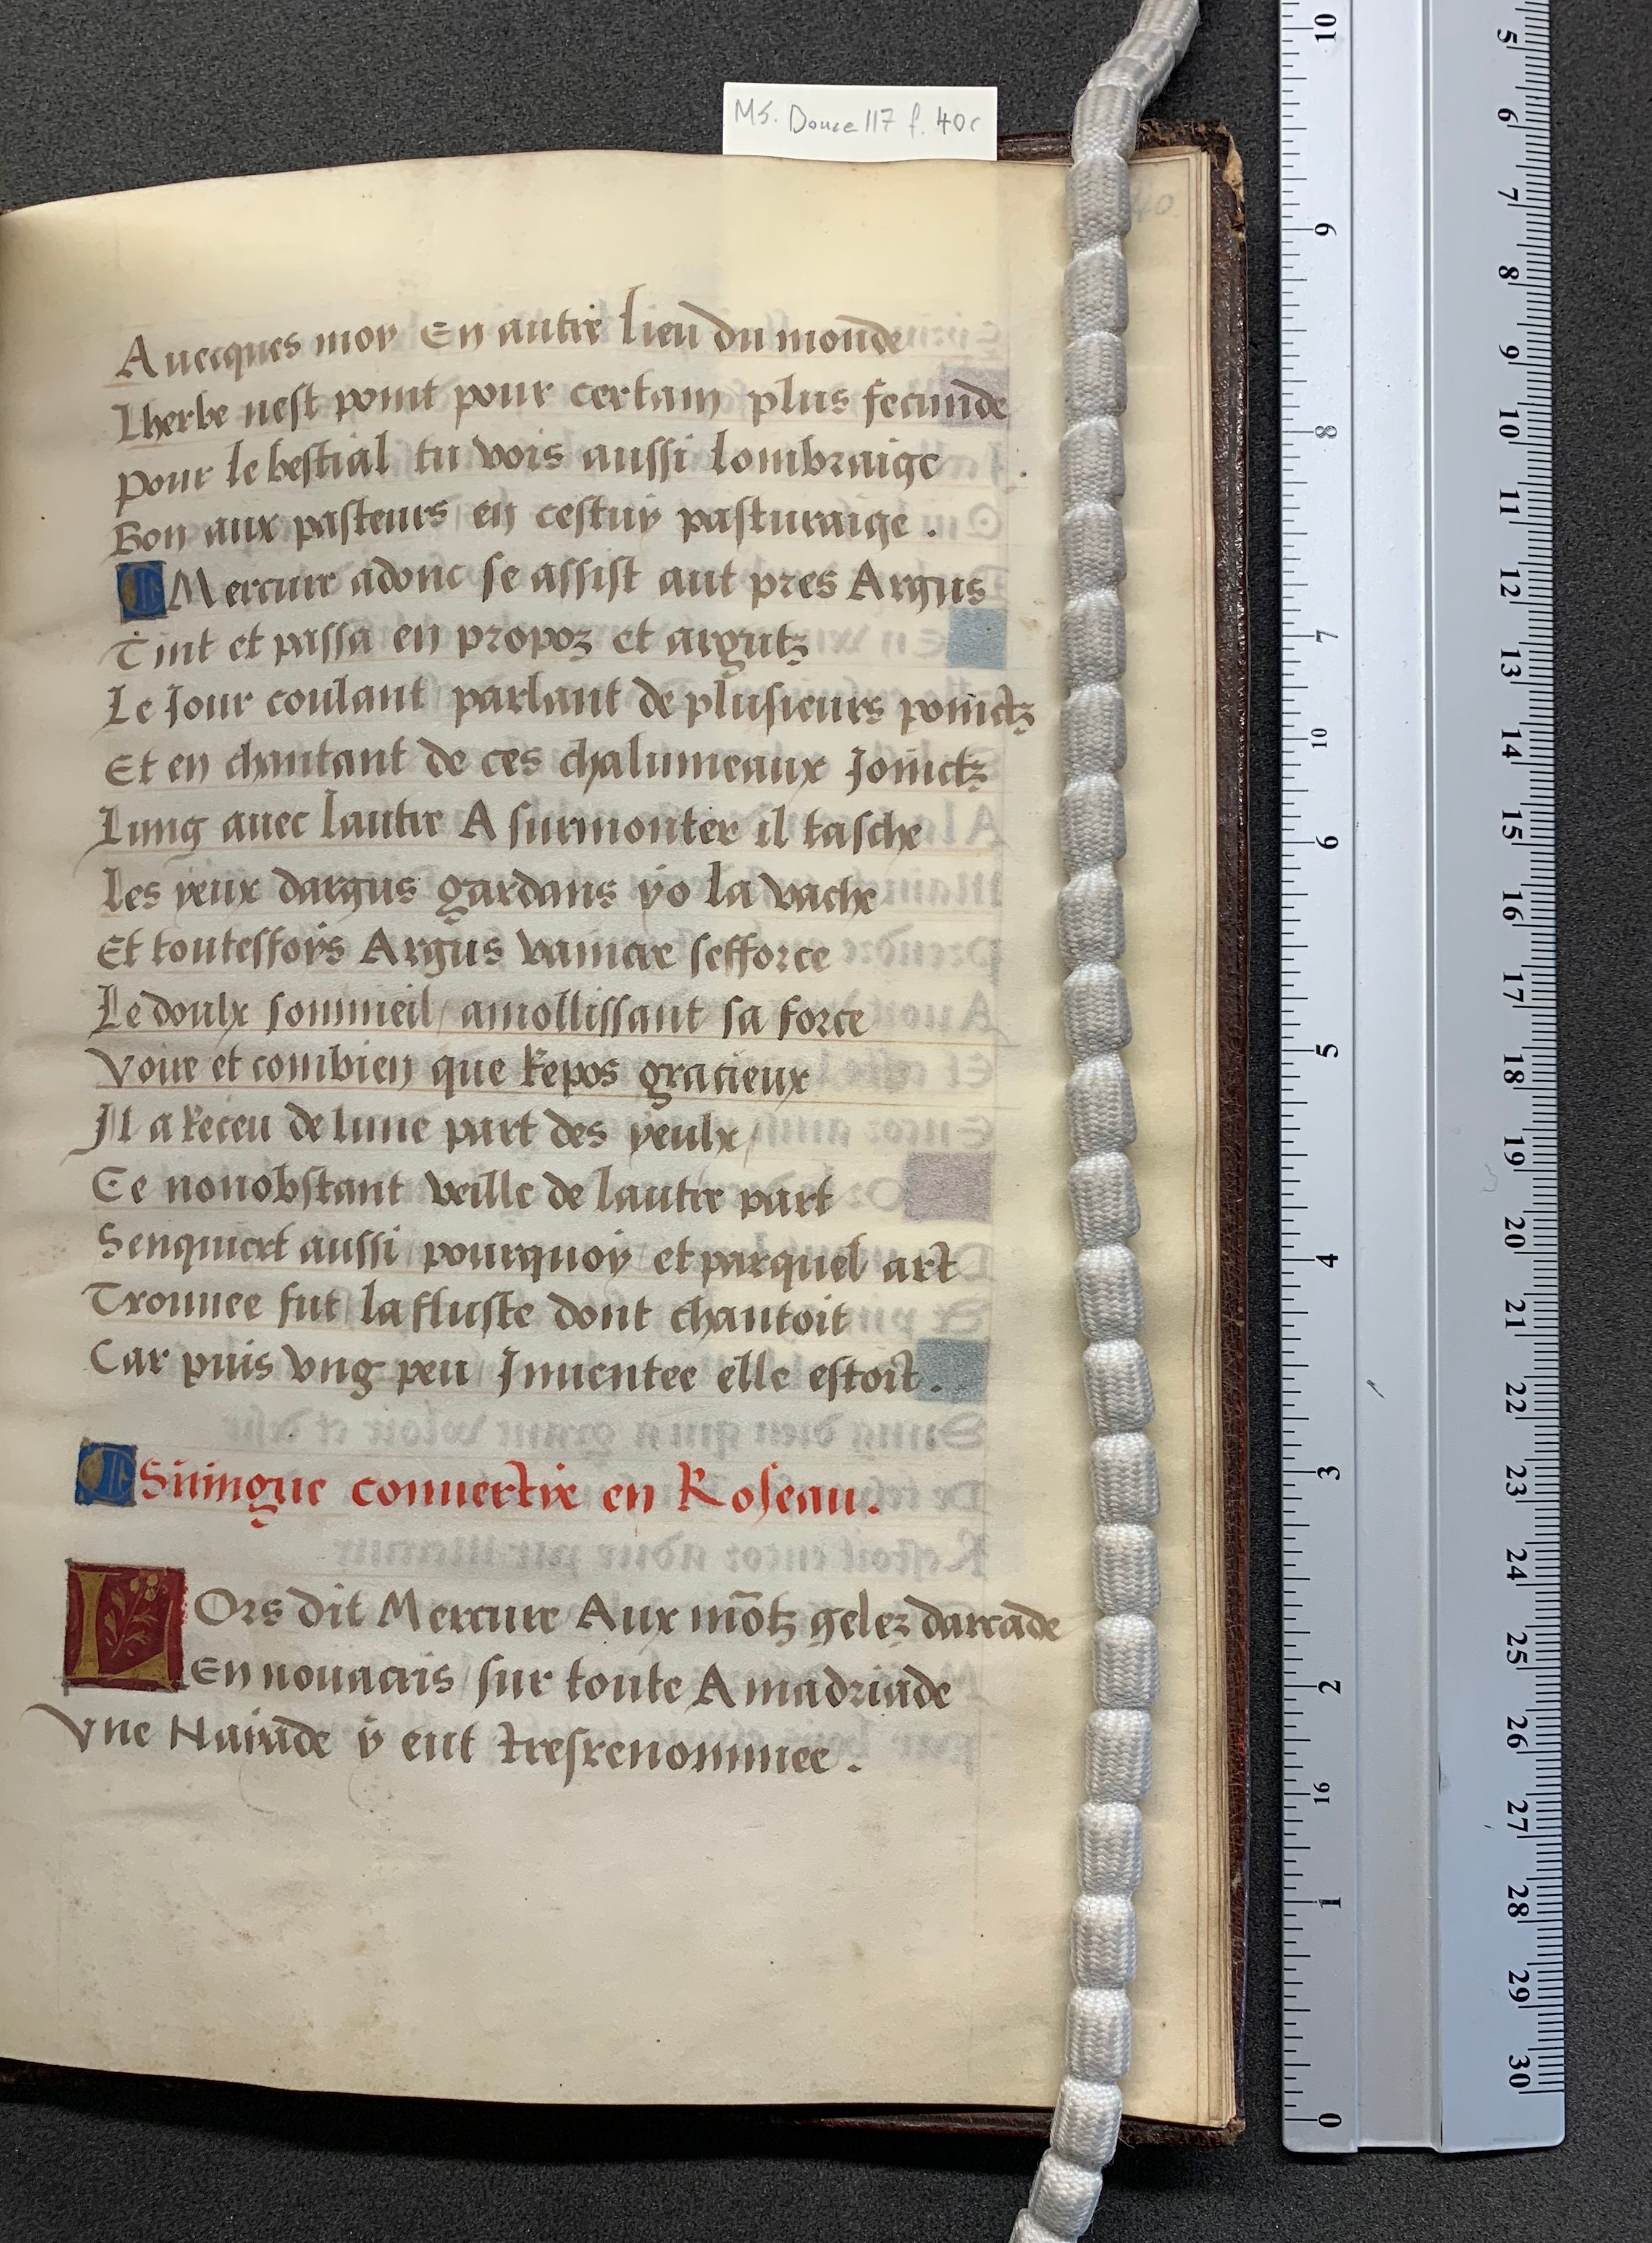 MS. Douce 117 f. 40r
40.
Auecques moy En autre lieu du monde
Lherbe nest point pour certain plus fecunde
pour le bestial tu vois aussi lombraige
Bon aux pasteurs en cestuy pasturaige .
Mercure adonc se assist aut pres Argus
Tint et passa en propoz et argutz
Le Jour coulant parlant de plusieurs poinctz
Et en chantant de ces chalumeaux Joinctz
Lung auec lautre A surmonter il tasche
Les yeux dargus gardans yo la vache
Et toutesfoys Argus vaincre sefforce
Le doulx sommeil / amollissant sa force
Voire et combien que Repos gracieux
Il a Receu de lune part des yeulx /
Ce nonobstant veille de lautre part
Senquiert aussi pourquoy et parquel art
Trouuee fut la fluste dont chantoit
Car puis vng peu Inuentee elle estoit .
Siringue conuertie en Roseau .
LOrs dit Mercure Aux mōtz gelez darcade
En nouacris / sur toute Amadriade
Vne Naiade y eut tresrenommee .
10
9
8
7
10
6
5
4
3
2
16
1
0
5
6
7
8
9
10
11
12
13
14
15
16
17
18
19
20
21
22
23
24
25
26
27
28
29
30